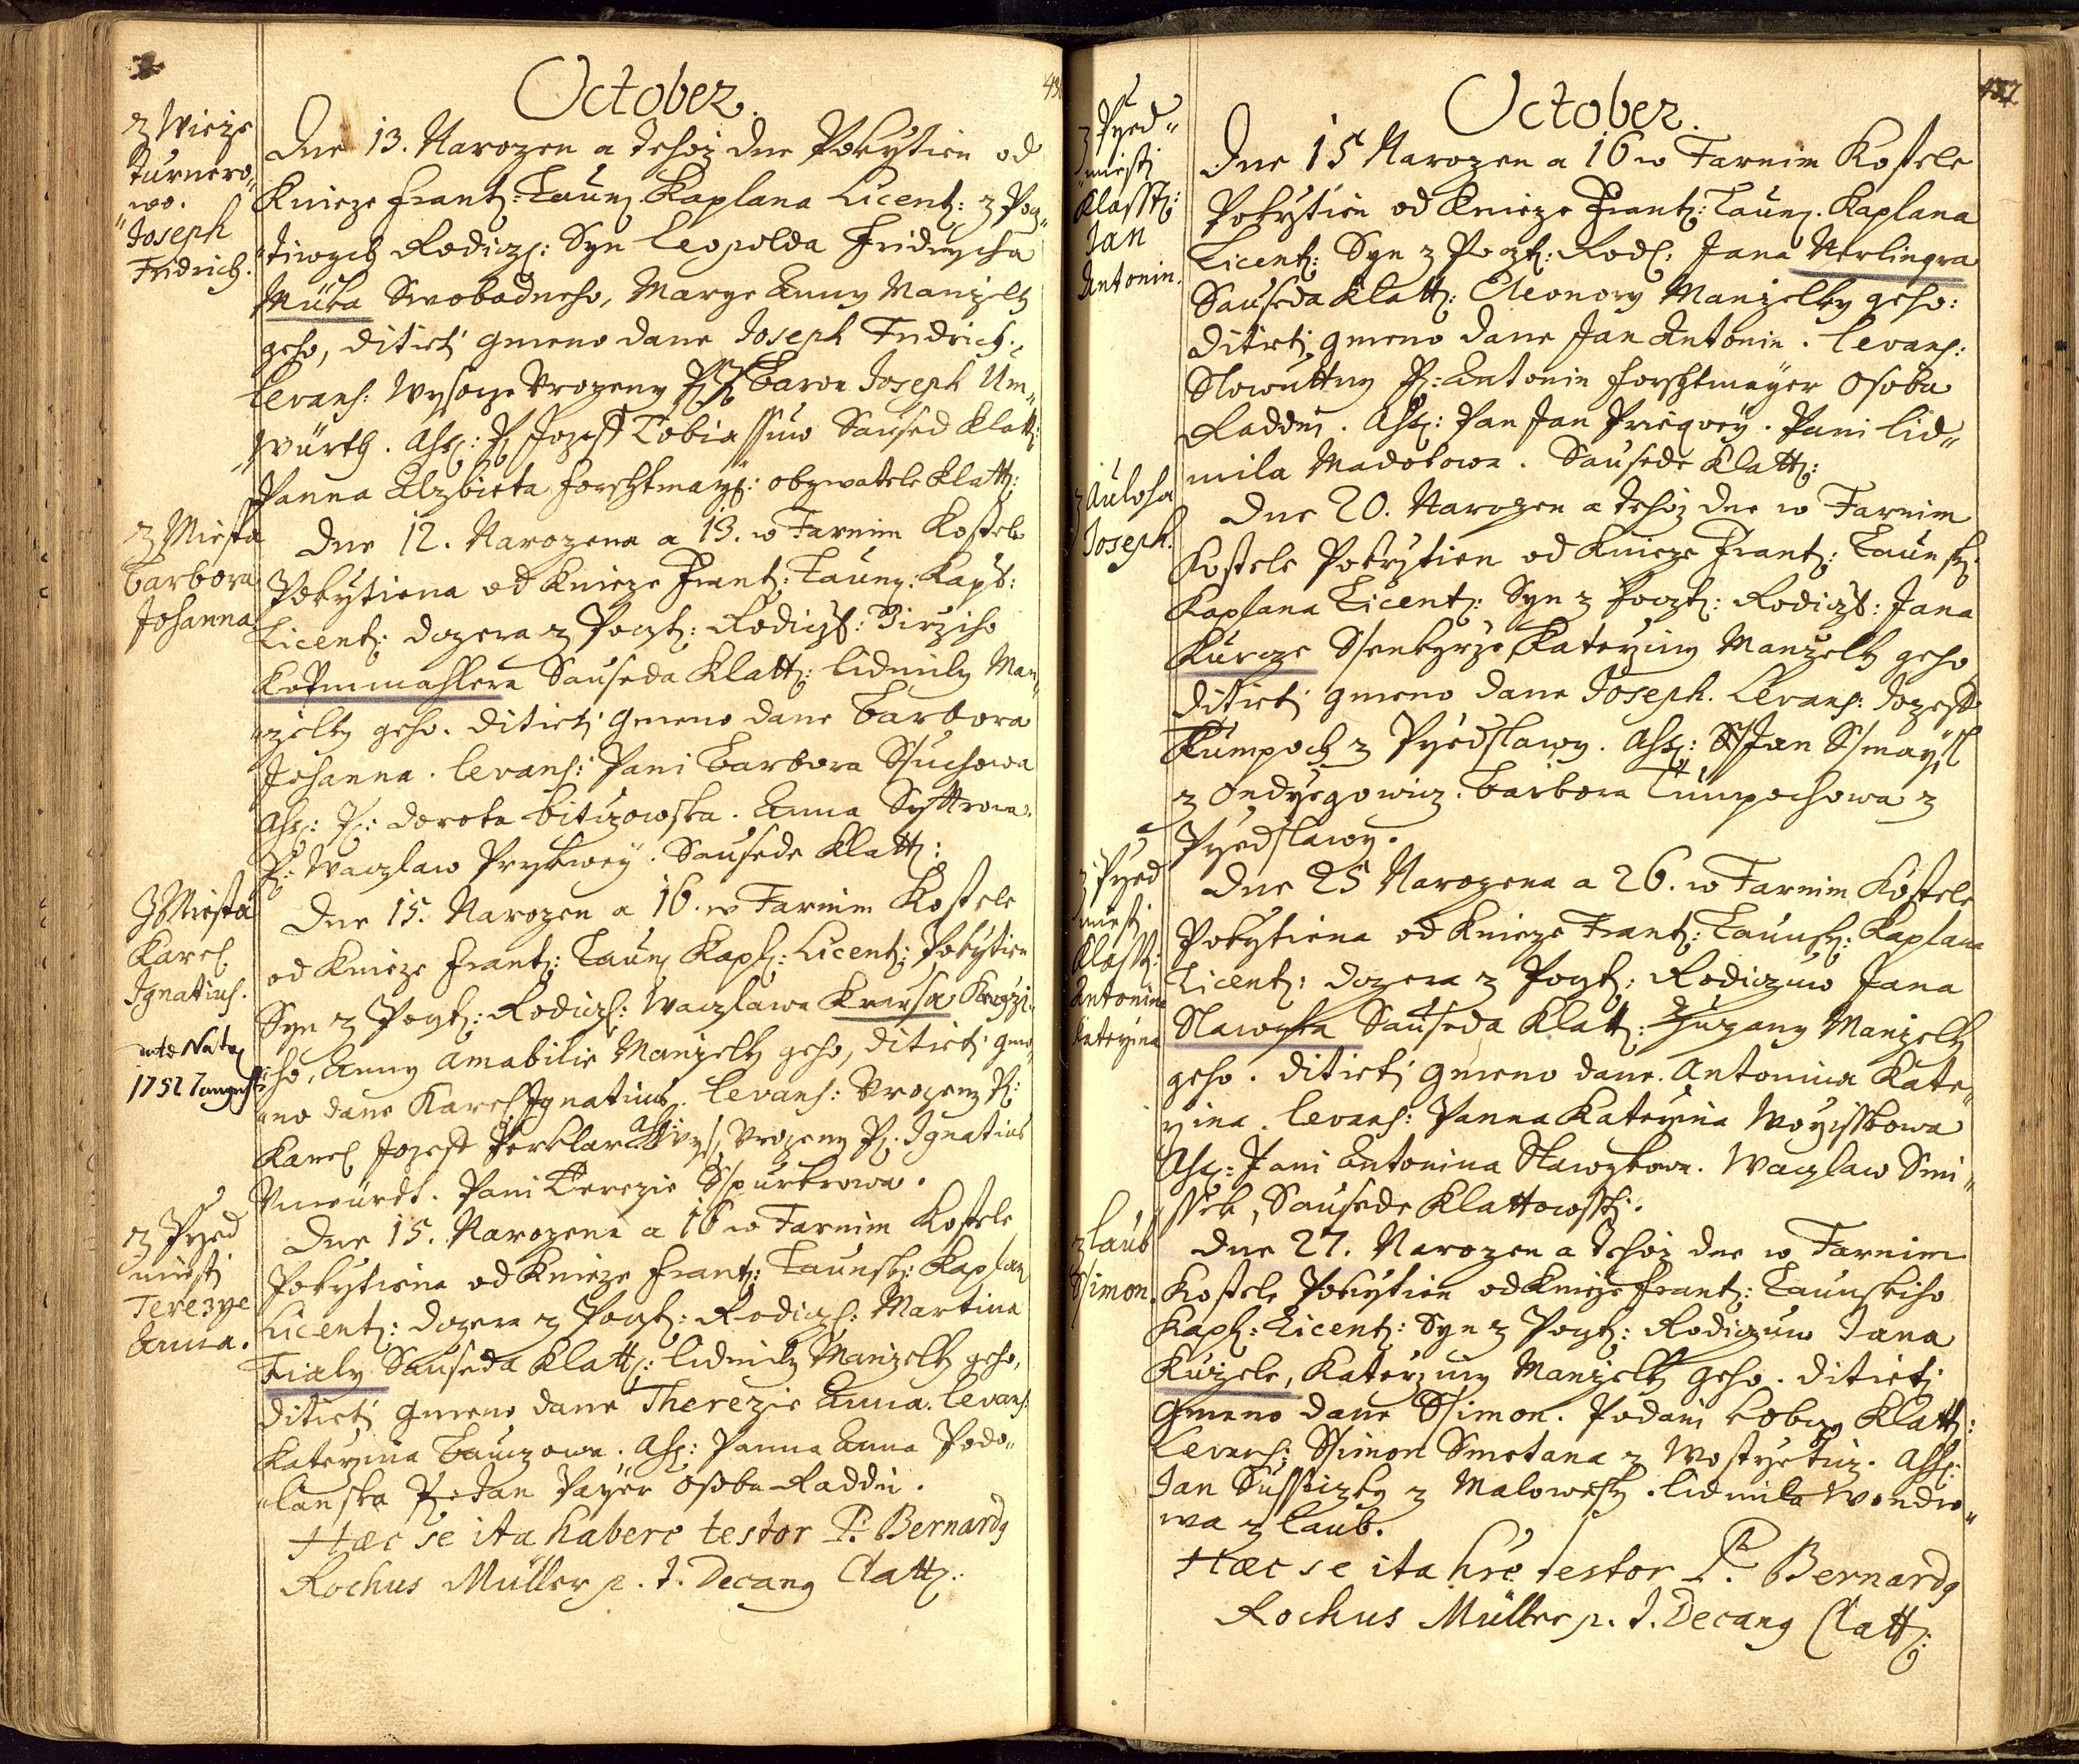 October.
z Wieze
Turnero„
„wo.
Joseph
Fridrich.
Dne 13. Narozen a tehoz dne Pokrztien od
Knieze Frantz: Taun: Kaplana Licent: z Pocz„
„tiwych Rodicz: Syn Leopolda Fridrycha
Müka Swobodneho, Marye Anny Manzelky
geho, ditieti gmeno dane Joseph Fridrich.
Levans: Wysocze Urozeny P: P: Baron Joseph Um„
„würth. Ass: P: Jozeff Tobiassuw Saused Klatt:
Panna Alzbieta Forschtmayr: obywatele Klatt:
z Miesta
Barbora
Johanna
Dne 12. Narozena a 13. w Farnim Kostele
Pokrztiena od Knieze Frantz: Taun: Kapl:
Licent: dczera z Poczt: Rodicz: Girziho
Kopmmahlera Sauseda Klatt: Lidmily Man„
„zelky geho. ditieti gmeno dane Barbora
Johanna. Levans: Pani Barbora Stuchowa
Ass: P: Dorota Bituzowska. Anna Syttrowa.
P: Waczlaw Prykwey. Sausede Klatt:
Z Miesta
Karel
Ignatius.
Note Nata
1752 7 augusti
Dne 15. Narozen a 16. w Farnim Kostele
od Knieze Frantz: Taun: Kapl: Licent: Pokrztien
Syn z Poczt: Rodicz: Waczlawa Krausa Kreyzi„
„ho, Anny Amabilie Manzelky geho, ditieti gme„
„no dane Karel Ignatius. Levans: Urozeny P:
Karel Jozeff Perklar Ass: Urozeny P: Ignatius
Umwürdt. Pani Terezie Sspurkrowa.
z Przed
miesti
Terezye
Anna.
Dne 15. Narozena a 16 w Farnim Kostele
Pokrztiena od Knieze Frantz: Taunsk: Kaplan
Licent: dczera z Poczt: Rodicz: Martina
Fialy Sauseda Klatt: Lidmily Manzelky geho,
ditieti gmeno dane Therezie Anna. Levans:
Katerzina Bauczowa. Ass: Panna Anna Podo„
„lanska P: Jan Payer Osoba Raddni.
Hæc se ita habere testor P. Bernard9
Rochus Müller p. t. Decan9 Clatt:
October.
437
z Przed„
„miesti
Klatt:
Jan
Antonin.
Dne 15 Narozen a 16 w Farnim Kostele
Pokrztien od Knieze Frantz: Taun: Kaplana
Licent: Syn z Poczt: Rod: Jana Nerlingra
Sauseda Klatt: Eleonory Manzelky geho:
ditieti gmeno dane Jan Antonin. Levans:
Slowuttny P: Antonin Forschtmayer Osoba
Raddni. Ass: Pan Jan Pricqwey. Pani Lid„
mila Madokowa. Sausede Klatt:
z Auloha
Joseph.
Dne 20. Narozen a tehoz dne w Farnim
Kostele Pokrztien od Knieze Frantz: Taunsk:
Kaplana Licent: Syn z Poczt: Rodicz: Jana
Kurcze Ssenkyrze, Katerziny Manzelky geho
ditieti gmeno dane Joseph. Levans: Jozeff
Kumpoch z Przedslawy. Ass: Jan Ssmayl
z Ondrzegowicz. Barbora Kumpochowa z
Przedslawy.
z Przed
miesti
Klatt:
Antonina
Katerzina
Dne 25 Narozena a 26. w Farnim Kostele
Pokrztiena od Knieze Frantz: Taunsk: Kaplana
Licent: dczera z Poczt: Rodiczuw Jana
Slawyka Sauseda Klatt: Zuzany Manzelky
geho. ditieti gmeno dane. Antonina Kate„
rzina. Levans: Panna Katerzina Woyisskowa
Ass: Pani Antonina Slawykowa. Waczlaw Smi„
ssek, Sausede Klattowsstj.
z Laub
Ssimon.
Dne 27. Narozen a tehoz dne w Farnim
Kostele Pokrztien od Knieze Frantz: Taunskiho
Kapl: Licent: Syn z Poczt: Rodiczuw Jana
Kuzele, Katerziny Manzelky geho. ditieti
gmeno dane Ssimon. Poddani k obcy Klatt:
Levans: Ssimon Smetana z Wostrzeticz. Ass:
Jan Sussiczky z Malowesk. Lidmila Wondro„
wa z Laub.
Hæc se ita hre testor P. Bernard9
Rochus Müller p. t. Decan9 Clatt: